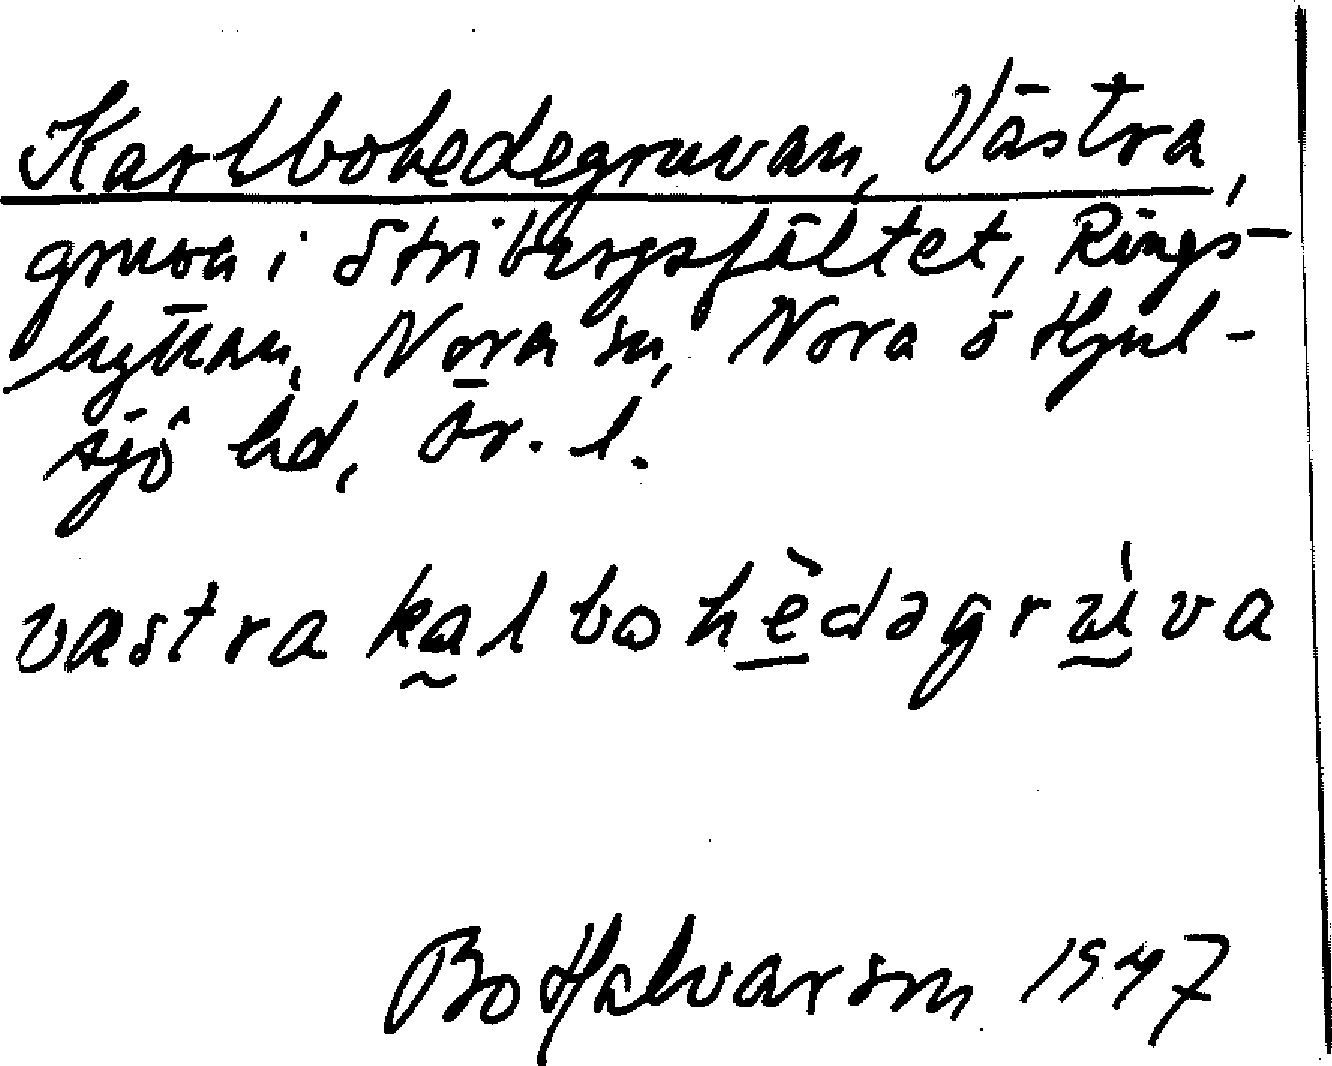 Karlbohedegruvan, Västra,
gruva i Stribergsfältet, Rings-
hyttan, Nora sn, Nora o Hjul-
sjö hd, Ör. l.
västra ka̰lbohè̱dəgrṵ́va
Bo Halvarson 1947